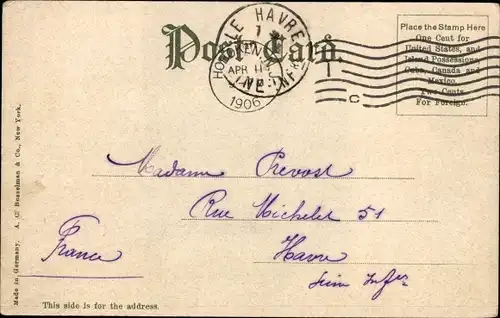 Post Card.
LE HAVRE
1
HOBOKEN
APR 11
1906
C
Place the Stamp Here
One Cent for
United States, and
Island Possessions,
Cuba, Canada and
Mexico.
Two Cents
For Foreign.
Madame Prevost
Rue Michelet 51
Havre
Seine Infre
France
Made in Germany. A. C. Bosselman & Co., New York.
This side is for the address.